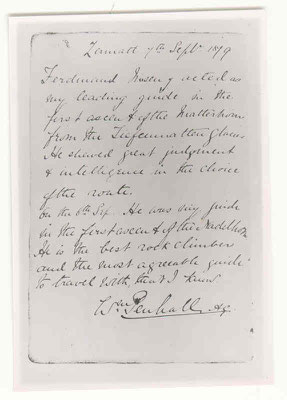 Zermatt 7th Sept 1879
Ferdinand Imseng acted as
my leading guide in the
first ascent of the Matterhorn
from the Tiefenmatten glacier
He showed great judgment
& intelligence in the choice
of the route.
On the 6th Sep. He was my guide
in the first ascent of the Nadelhorn
He is the best rock climber
and the most agreeable guide
to travel with, that I know.
Wm Penhall